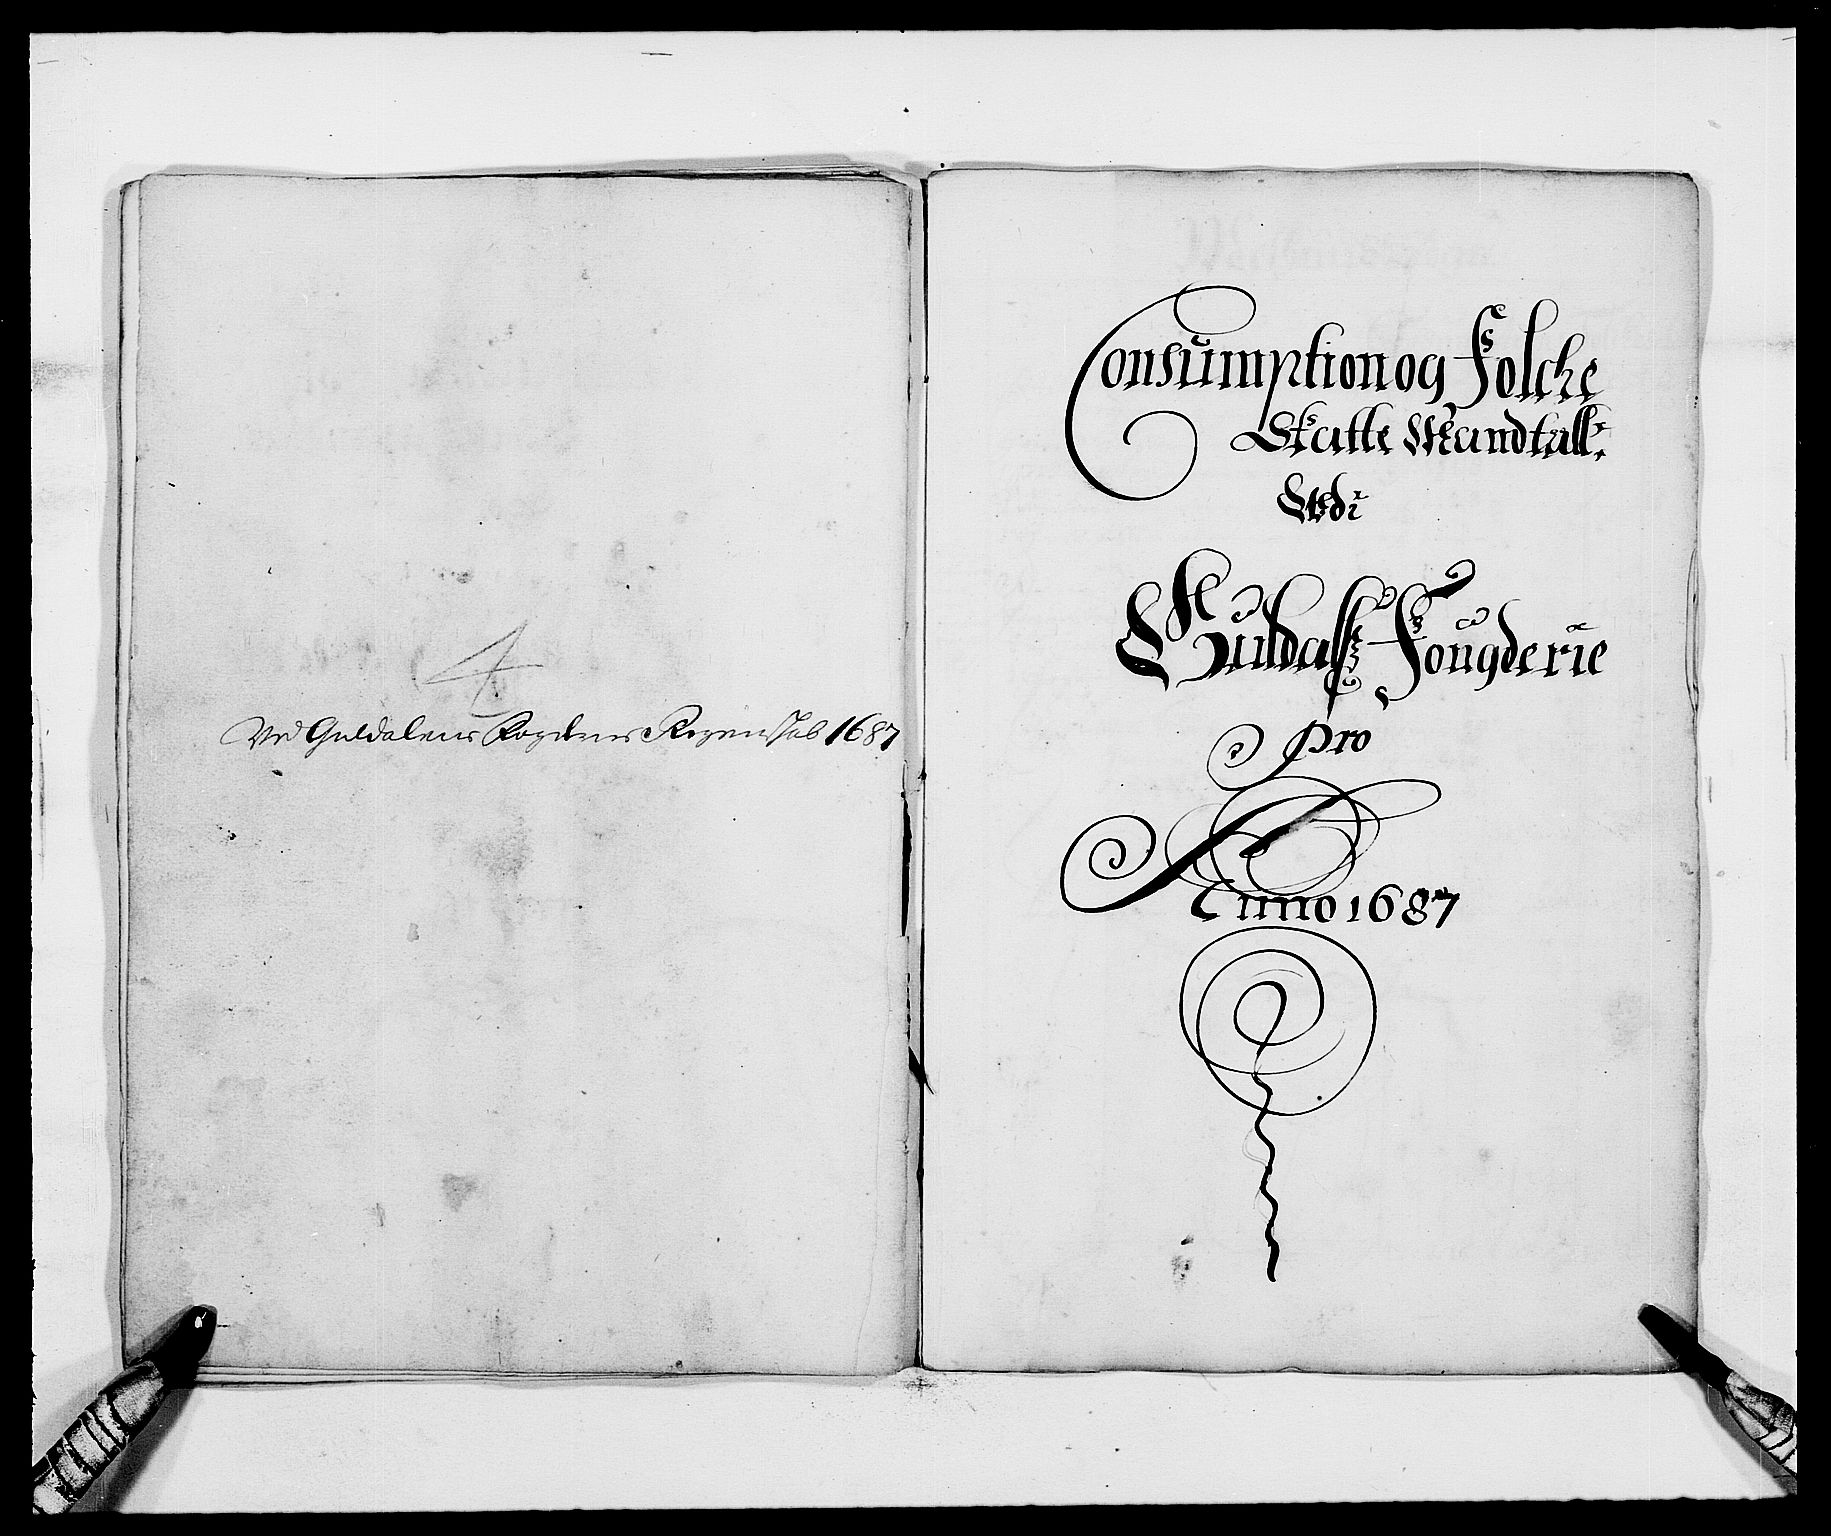 4
Ved Guldalens Fogdens Regenskab 1687
Consumption og Folche
Skatte Mandtall.
Udi
Guldalß Fougderie
Pro
Anno 1687